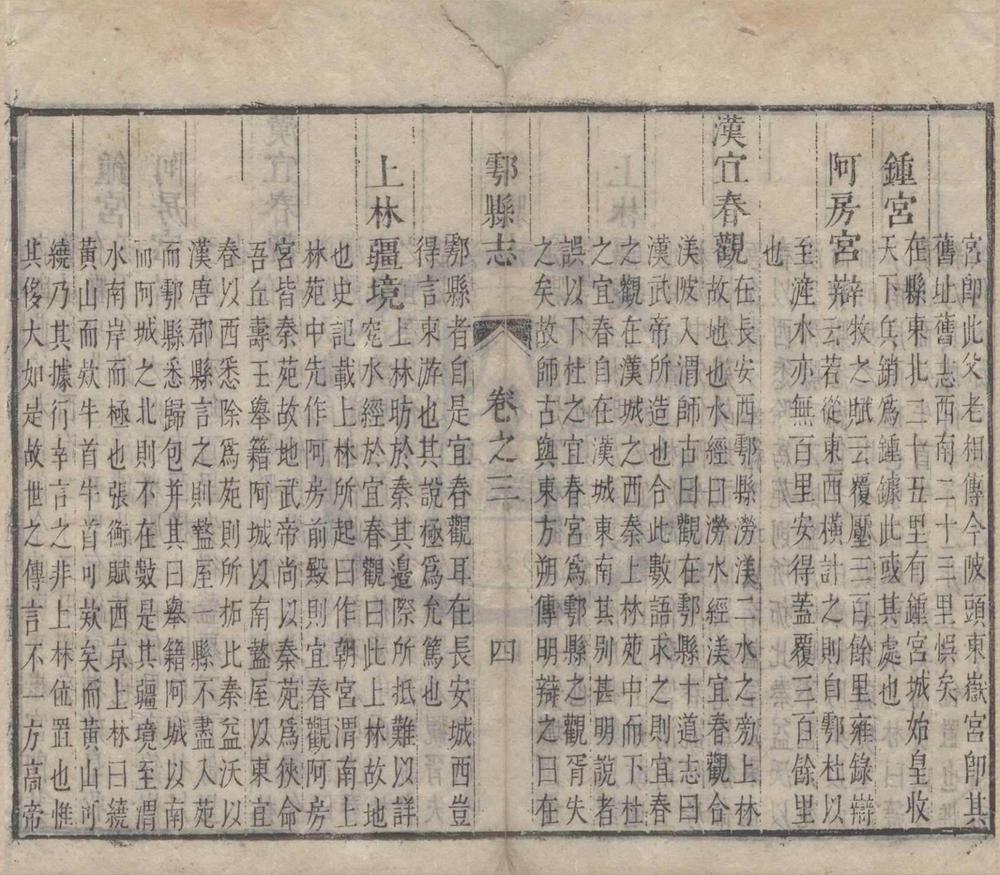 宮卽此父老相傳今陂頭東嶽宮卽其
舊址舊志西南二十三里悞矣
鍾宮在縣東北二十五里有鍾宮城始皇收
天下兵銷爲鍾鐻此或其處也
阿房宮辯牧之賦云覆壓三百餘里雍錄辯
云若從東西橫計之則自鄠杜以
至滻水亦無百里安得蓋覆三百餘里
也
漢宜春觀在長安西鄠縣澇渼二水之旁上林
故地也水經曰澇水經渼宜春觀合
渼陂入渭師古曰觀在鄠縣十道志曰
漢武帝所造也合此數語求之則宜春
之觀在漢城之西秦上林苑中而下杜
之宜春自在漢城東南其别甚明說者
誤以下杜之宜春宮爲鄠縣之觀胥失
之矣故師古與東方朔傳明辯之曰在
鄠縣志 卷之三 四
鄠縣者自是宜春觀耳在長安城西豈
得言東游也其說極爲允篤也
上林疆境上林昉於秦其邊際所抵難以詳
窺水經於宜春觀曰此上林故地
也史記載上林所起曰作朝宮渭南上
林苑中先作阿房前殿則宜春觀阿房
宮皆秦苑故地武帝尚以秦苑爲狹命
吾丘壽王舉籍阿城以南盩厔以東宜
春以西悉除爲苑則所拓比秦益沃以
漢唐郡縣言之則盩厔一縣不盡入苑
而鄠縣悉歸包并其曰舉籍阿城以南
而阿城之北則不在數是其疆境至渭
水南岸而極也張衡賦西京上林曰繞
黃山而欵牛首牛首可欵矣而黃山可
繞乃其據衍辛言之非上林位置也惟
其侈大如是故世之傳言不一方高帝